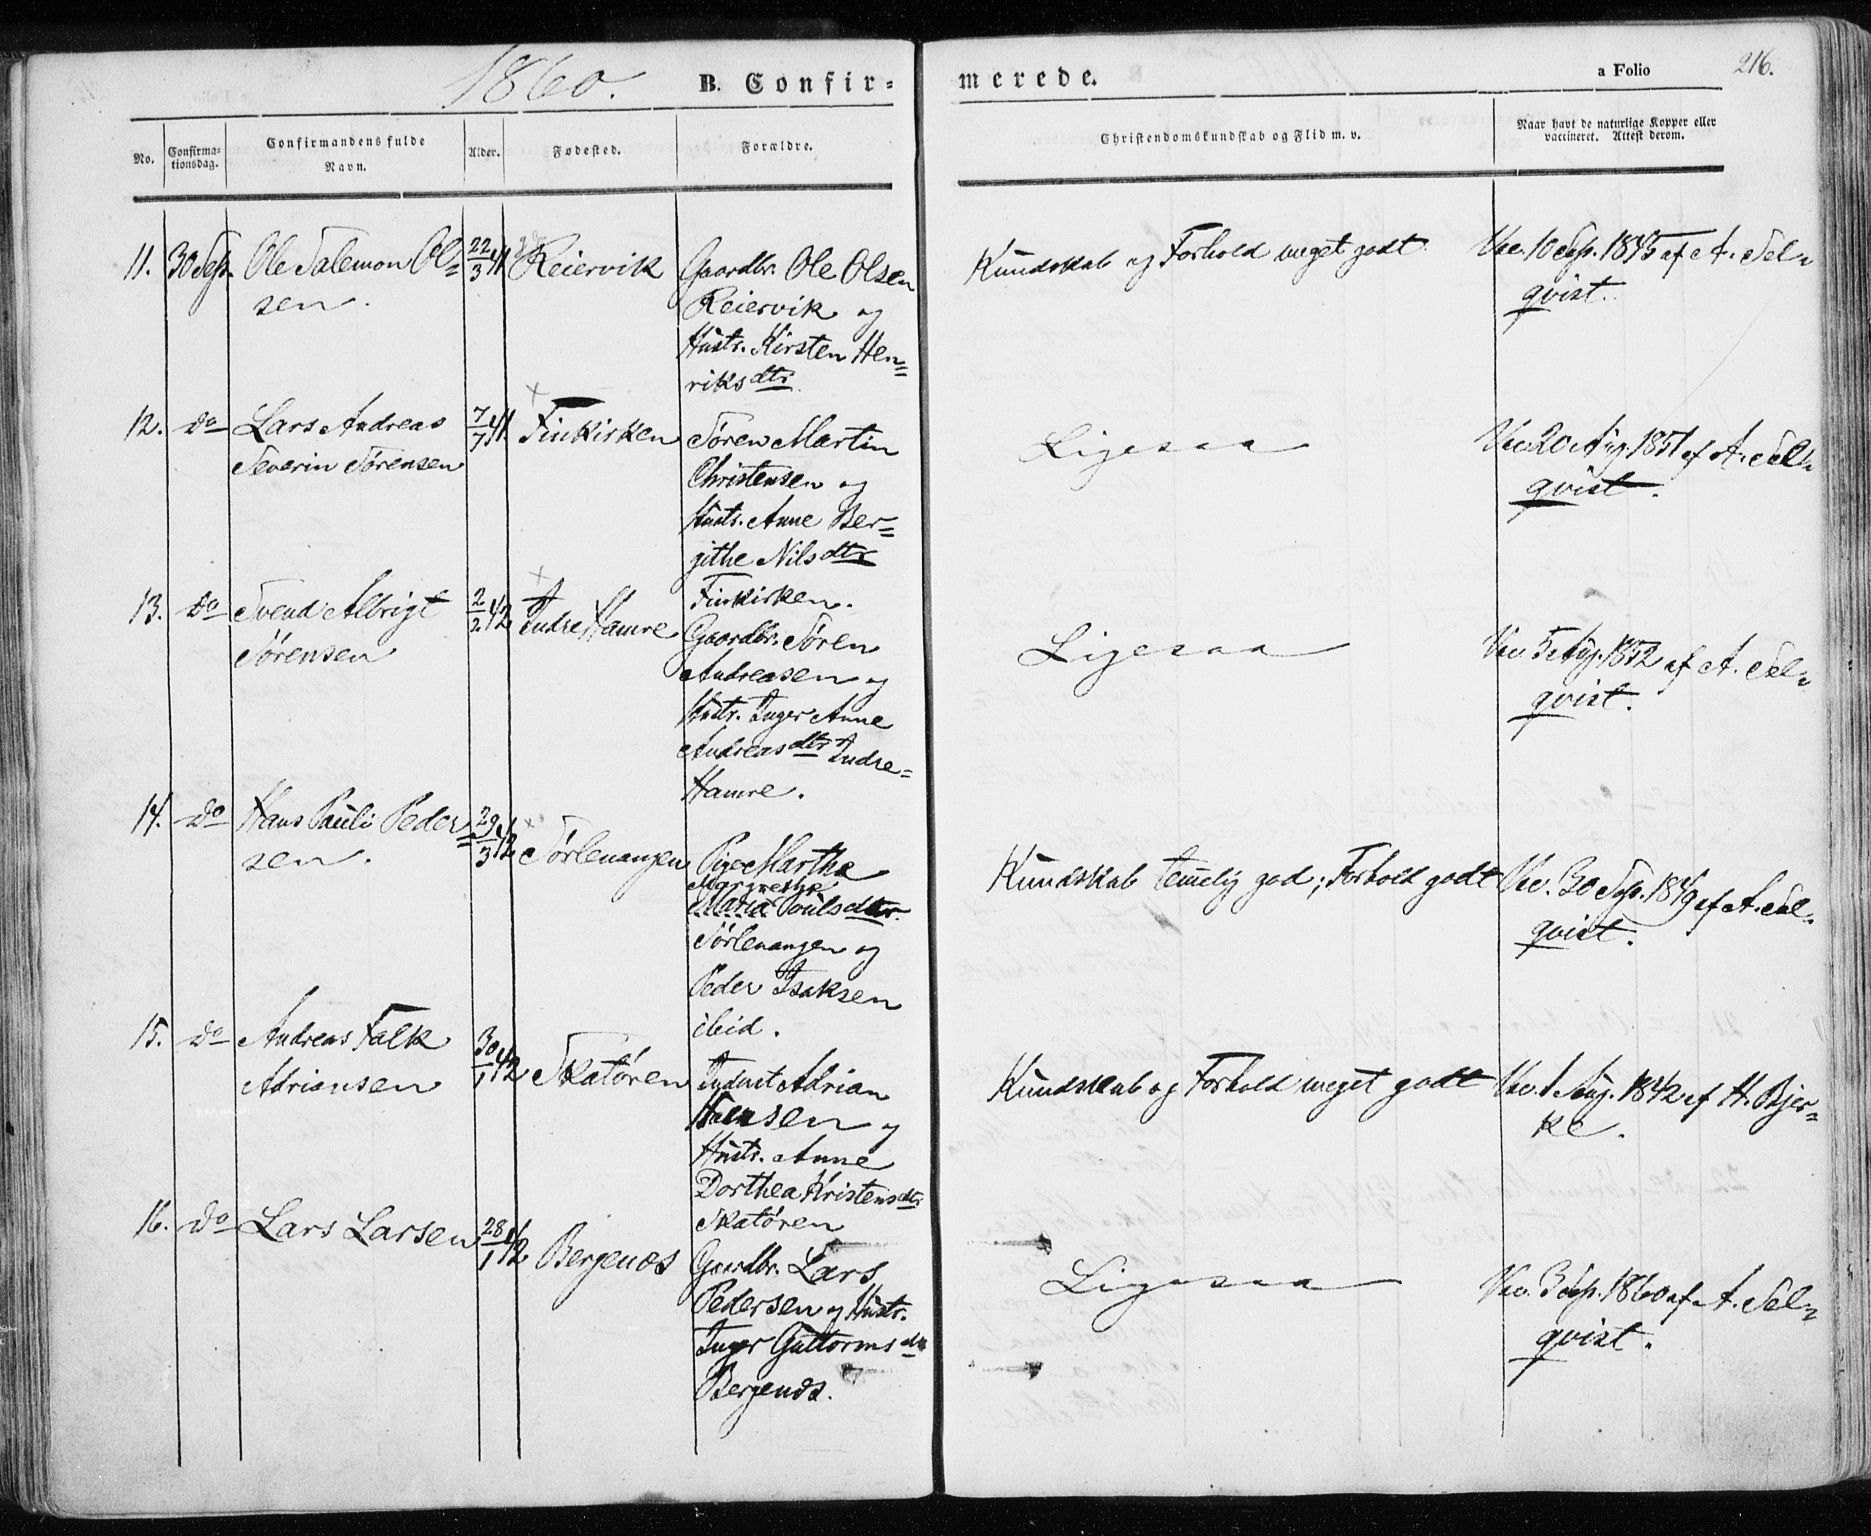 1860.
B. Confir-
merede.
a Folio
216.
No.
Confirma-
tionsdag.
Confirmandens fulde
Navn.
Alder.
Fødested.
Forældre.
Christendomskundskab og Flid m. v.
Naar havt de naturlige Kopper eller
vaccineret. Attest derom.
11. 30 Sep. Ole Salemon Ol= 22/3 41 Reiervik Gaardbr. Ole Olsen Kundskab og Forhold meget godt Vac. 10 Sep. 1845 af A. Sel=
sen. Reiervik og qvist.
Hustr. Kirsten Hen=
riksdtr
12. do Lars Andreas 7/7 41. Finkirken Sören Martin Ligesaa Vac 20 Aug. 1851 af A. Sel=
Severin Sørensen Christensen og qvist.
Hustr. Anne Ber=
githe Nilsdtr
Finkirken.
13. do Svend Albrigt 2/2 42 Indre Hamre Gaardbr. Sören Ligesaa Vac. 5 Aug. 1852 af A. Sel=
Sørensen Andreasen og qvist.
Hustr. Inger Anne
Andreasdtr Indre=
Hamre.
14. do Hans Pauli Peder= 29/3 42 Sørlenangen Pige Martha Kundskab temelig god; Forhold godt Vac. 30 Sep. 1849 af A. Sel=
sen. Margrethe qvist.
Maria Poulsdtr.
Sørlenangen og
Peder Isaksen
ibid.
15. do Andreas Falk 30/1 42 Skatøren Inderst Adrian Kundskab og Forhold meget godt Vac. 1 Aug. 1842 af H. Bjer=
Adriansen Hansen og ke.
Hustr. Anne
Dorthea Kristensdtr
Skatøren
16. do Lars Larsen 28/1 42 Bergenæs Gaardbr. Lars Ligesaa Vac. 3 Sep. 1860 af A. Sel=
Pedersen og Hustr. qvist.
Inger Guttormsdtr
Bergenæs.